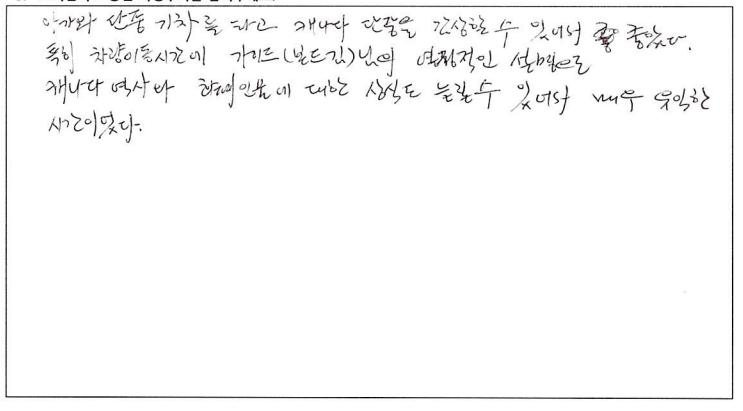 아가와 단풍 기차를 타고 캐나다 단풍을 감상할 수 있어서 좋았다.
특히 차량이동시간에 가이드(빌드김)님의 열정적인 설명으로
캐나다 역사와 현대인물에 대한 상식도 늘릴 수 있어서 매우 유익한
시간이었다.